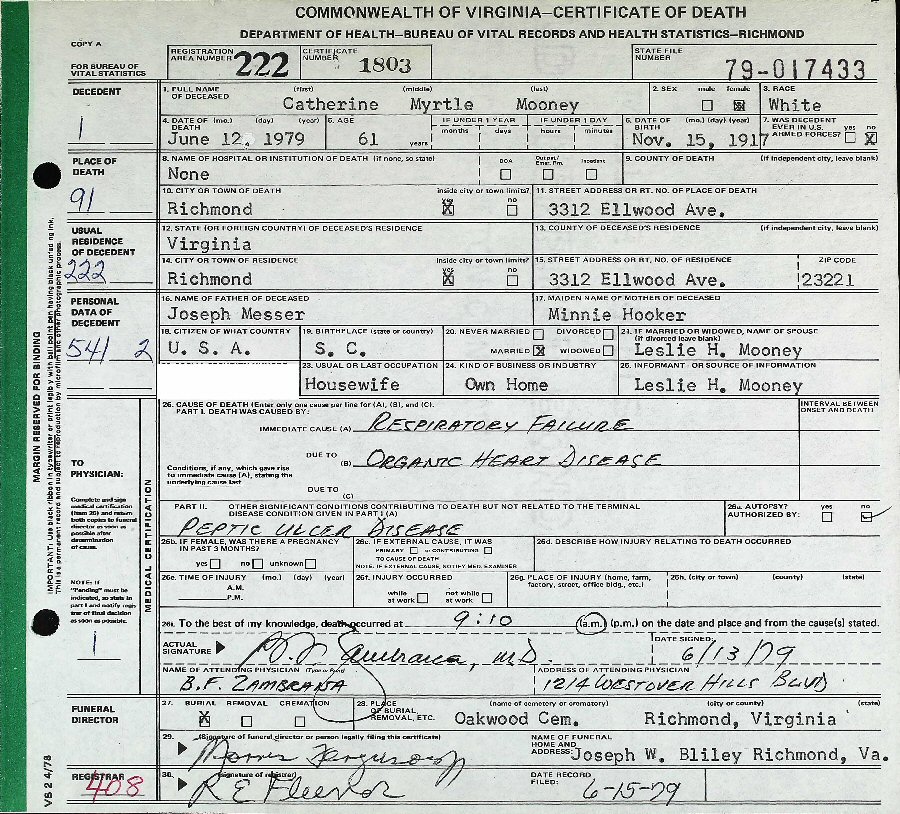 COMMONWEALTH OF VIRGINIA—CERTIFICATE OF DEATH
DEPARTMENT OF HEALTH—BUREAU OF VITAL RECORDS AND HEALTH STATISTICS—RICHMOND
COPY A
FOR BUREAU OF VITAL STATISTICS
REGISTRATION AREA NUMBER 222
CERTIFICATE NUMBER 1803
STATE FILE NUMBER 79-017433
DECEDENT
1
1. FULL NAME OF DECEASED (first) (middle) (last)
Catherine Myrtle Mooney
2. SEX male female ☒
3. RACE White
4. DATE OF DEATH (mo.) (day) (year)
June 12, 1979
5. AGE 61 years
IF UNDER 1 YEAR months days
IF UNDER 1 DAY hours minutes
6. DATE OF BIRTH (mo.) (day) (year)
Nov. 15, 1917
7. WAS DECEDENT EVER IN U.S. ARMED FORCES? yes no X
PLACE OF DEATH
91
8. NAME OF HOSPITAL OR INSTITUTION OF DEATH (if none, so state)
None
DOA Outpat./Emer. Rm. Inpatient
9. COUNTY OF DEATH (if independent city, leave blank)
10. CITY OR TOWN OF DEATH inside city or town limits? yes X no
Richmond
11. STREET ADDRESS OR RT. NO. OF PLACE OF DEATH
3312 Ellwood Ave.
USUAL RESIDENCE OF DECEDENT
222
12. STATE (OR FOREIGN COUNTRY) OF DECEASED'S RESIDENCE
Virginia
13. COUNTY OF DECEASED'S RESIDENCE (if independent city, leave blank)
14. CITY OR TOWN OF RESIDENCE inside city or town limits? yes X no
Richmond
15. STREET ADDRESS OR RT. NO. OF RESIDENCE ZIP CODE
3312 Ellwood Ave. 23221
PERSONAL DATA OF DECEDENT
541 2
16. NAME OF FATHER OF DECEASED
Joseph Messer
17. MAIDEN NAME OF MOTHER OF DECEASED
Minnie Hooker
18. CITIZEN OF WHAT COUNTRY
U. S. A.
19. BIRTHPLACE (state or country)
S. C.
20. NEVER MARRIED DIVORCED
MARRIED X WIDOWED
21. IF MARRIED OR WIDOWED, NAME OF SPOUSE (if divorced leave blank)
Leslie H. Mooney
23. USUAL OR LAST OCCUPATION
Housewife
24. KIND OF BUSINESS OR INDUSTRY
Own Home
25. INFORMANT - OR SOURCE OF INFORMATION
Leslie H. Mooney
MARGIN RESERVED FOR BINDING
IMPORTANT: Use black ribbon in typewriter or print legibly with ball point pen having black unfading ink.
This is a permanent record and subject to reproduction by microfilm and other photographic process.
TO PHYSICIAN:
Complete and sign medical certification (item 26) and return both copies to funeral director as soon as possible after determination of cause.
NOTE: If "Pending" must be indicated, so state in part I and notify registrar of final decision as soon as possible.
1
MEDICAL CERTIFICATION
26. CAUSE OF DEATH (Enter only one cause per line for (A), (B), and (C).
PART I. DEATH WAS CAUSED BY:
INTERVAL BETWEEN ONSET AND DEATH
IMMEDIATE CAUSE (A) RESPIRATORY FAILURE
DUE TO (B) ORGANIC HEART DISEASE
Conditions, if any, which gave rise to immediate cause (A), stating the underlying cause last
DUE TO (C)
PART II. OTHER SIGNIFICANT CONDITIONS CONTRIBUTING TO DEATH BUT NOT RELATED TO THE TERMINAL DISEASE CONDITION GIVEN IN PART I (A)
PEPTIC ULCER DISEASE
26a. AUTOPSY? AUTHORIZED BY: yes no ✓
26b. IF FEMALE, WAS THERE A PREGNANCY IN PAST 3 MONTHS?
yes no unknown
26c. IF EXTERNAL CAUSE, IT WAS
PRIMARY or CONTRIBUTING
TO CAUSE OF DEATH
NOTE: IF EXTERNAL CAUSE, NOTIFY MED. EXAMINER
26d. DESCRIBE HOW INJURY RELATING TO DEATH OCCURRED
26e. TIME OF INJURY (mo.) (day) (year)
A.M.
P.M.
26f. INJURY OCCURRED
while at work not while at work
26g. PLACE OF INJURY (home, farm, factory, street, office bldg., etc.)
26h. (city or town) (county) (state)
26i. To the best of my knowledge, death occurred at 9:10 (a.m.) (p.m.) on the date and place and from the cause(s) stated.
ACTUAL SIGNATURE B. F. Zambrana, M.D.
DATE SIGNED: 6/13/79
NAME OF ATTENDING PHYSICIAN (Type or Print)
B.F. ZAMBRANA
ADDRESS OF ATTENDING PHYSICIAN
1214 WESTOVER HILLS BLVD
FUNERAL DIRECTOR
27. BURIAL X REMOVAL CREMATION
28. PLACE OF BURIAL, REMOVAL, ETC. (name of cemetery or crematory) (city or county) (state)
Oakwood Cem. Richmond, Virginia
29. (Signature of funeral director or person legally filing this certificate)
NAME OF FUNERAL HOME AND ADDRESS: Joseph W. Bliley Richmond, Va.
REGISTRAR
408
30. (signature of registrar)
DATE RECORD FILED: 6-15-79
VS 2 4/78